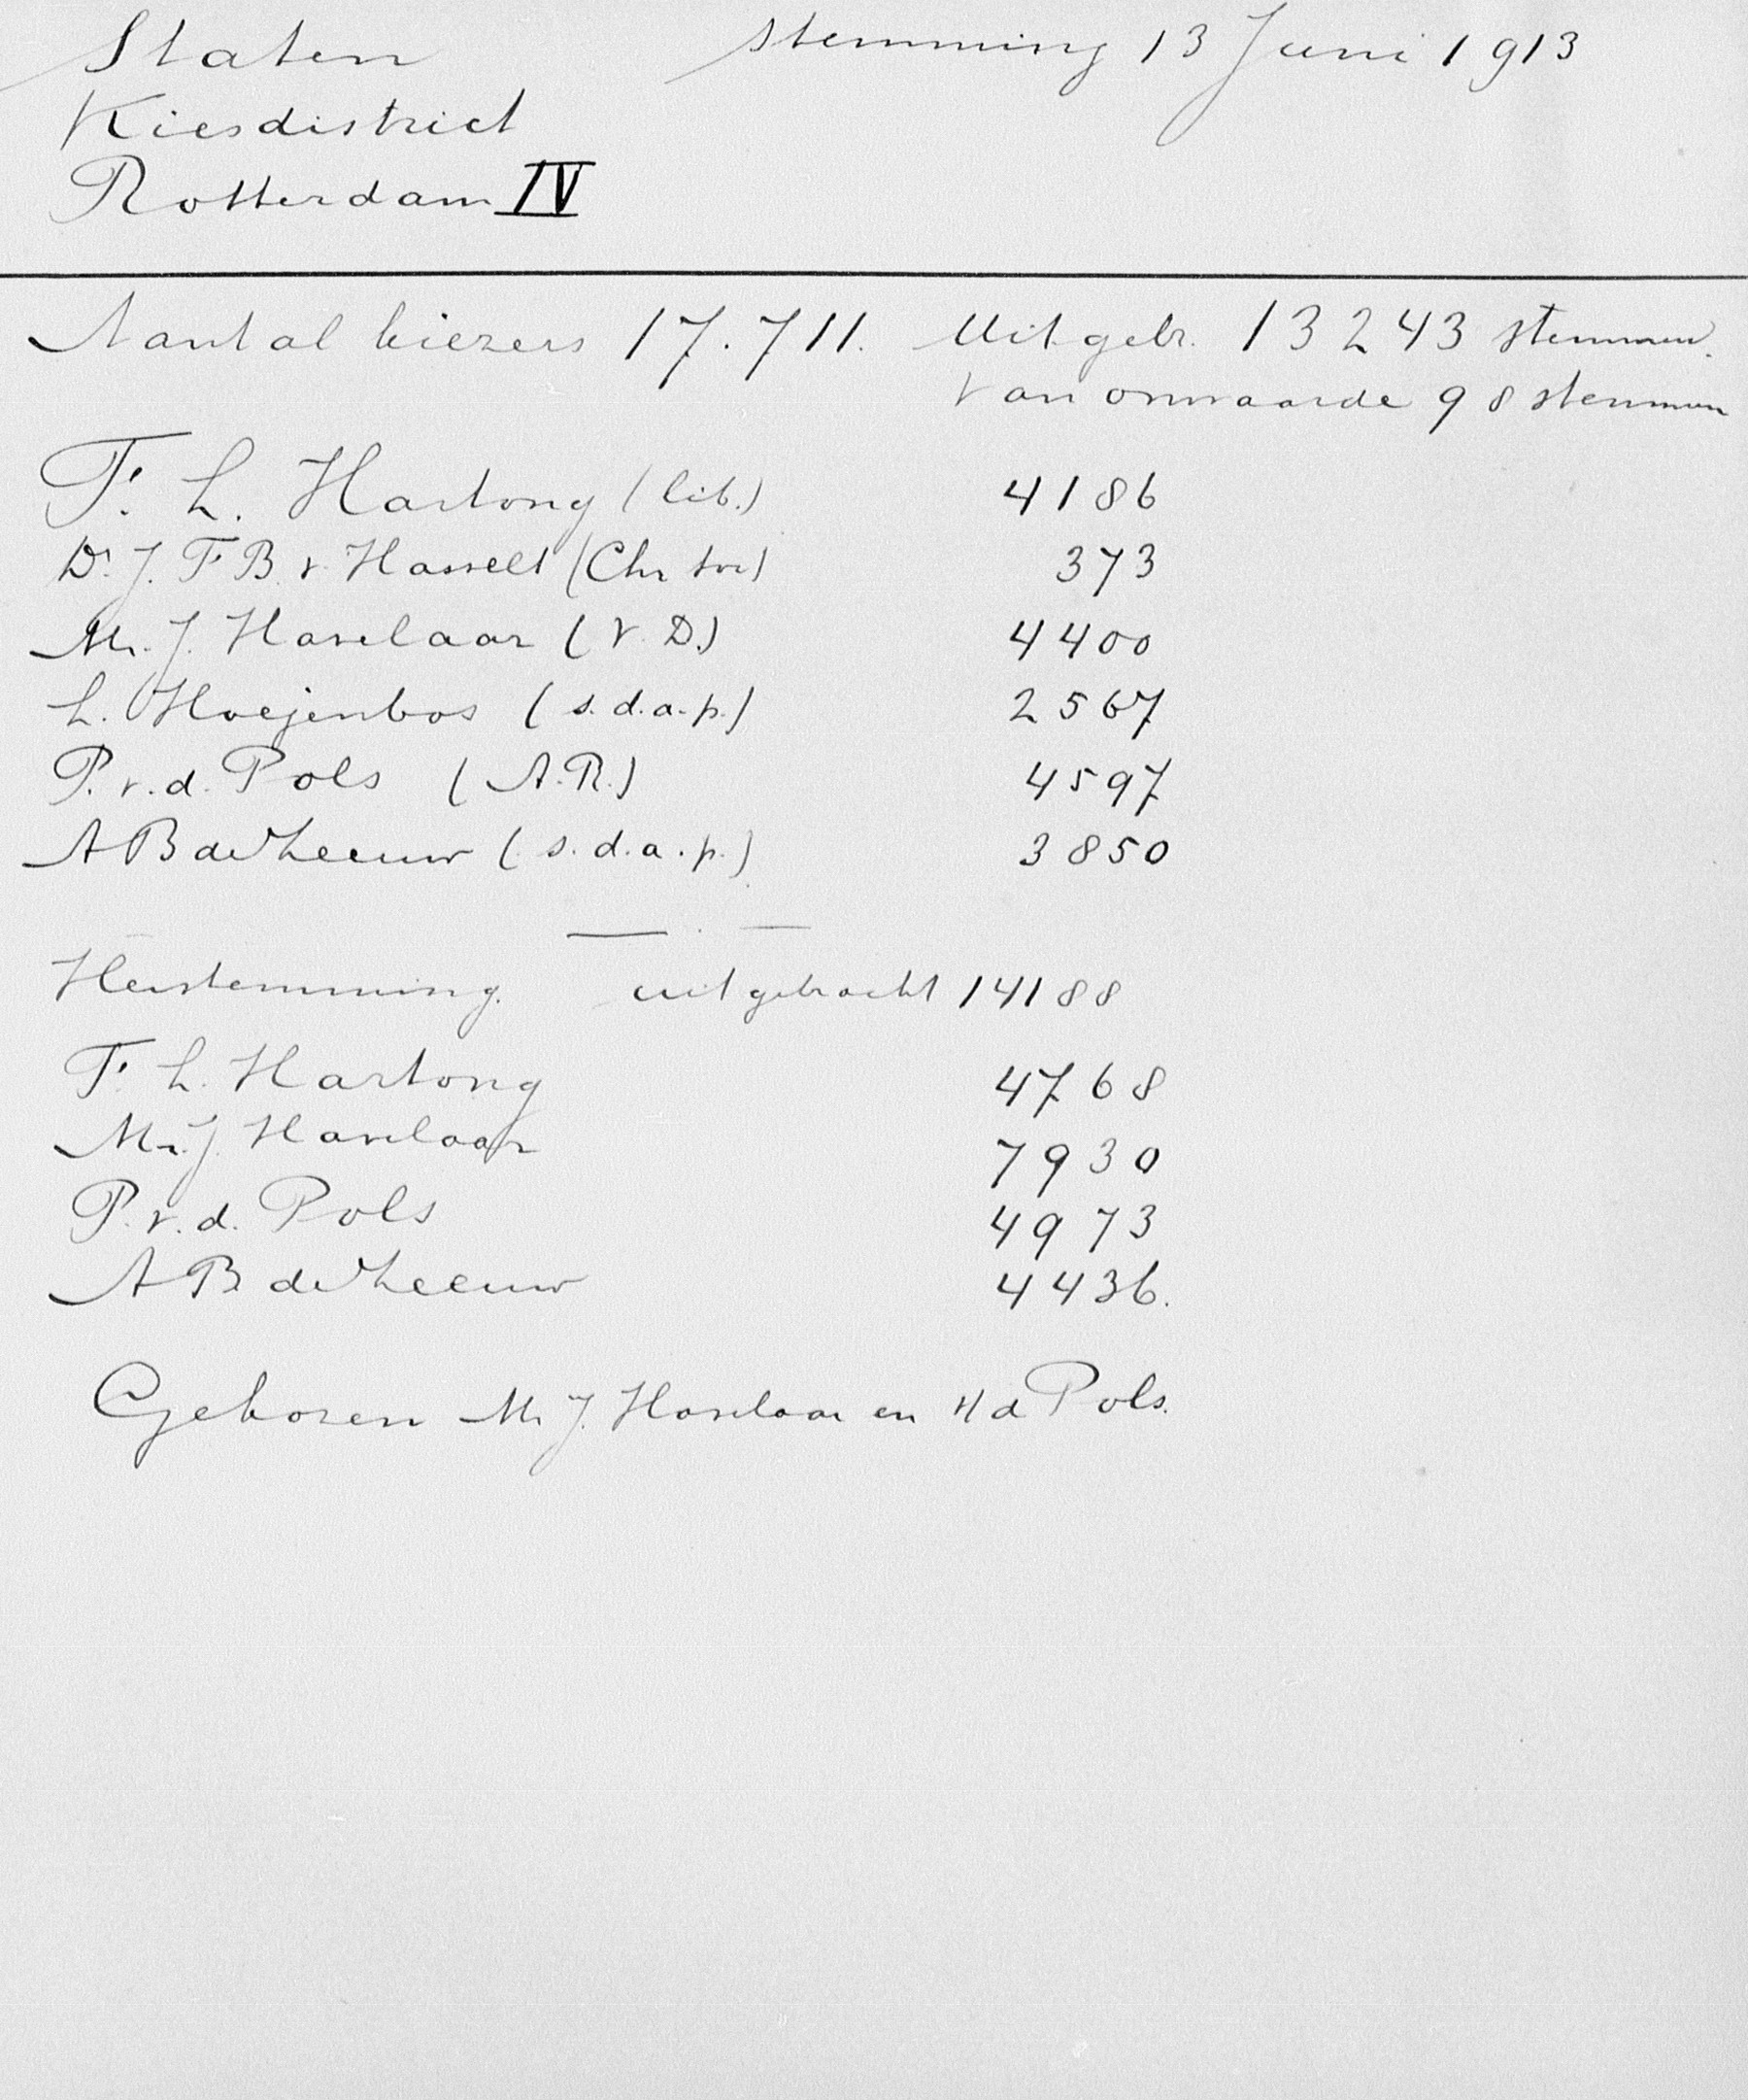 Staten stemming 13 Juni 1913
Kiesdistrict
Rotterdam IV
Aantal kiezers 17.711. Uitgebr. 13243 stemmen.
van onwaarde 98 stemmen
F. L. Hartong (lib.) 4186
Dr. J. F B v Hasselt (Chr soc) 373
Mr. J. Haselaar (V. D.) 4400
L. Hoejenbos (s.d.a.p.) 2567
P. v. d. Pols (A.R.) 4597
A B de Leeuw (s.d.a.p.) 3850
Herstemming. uitgebracht 14188
F. L. Hartong 4768
Mr. J. Haselaar 7930
P. v. d. Pols 4973
A B de Leeuw 4436.
Gekozen Mr J. Haselaar en v d Pols.